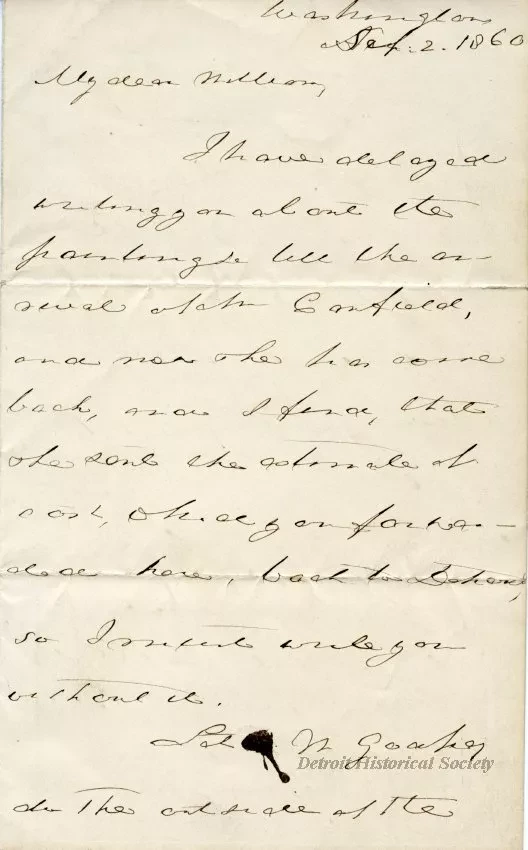 Washington
Sep. 2. 1860
My dear William,
I have delayed
writing you about the
painting &c till the ar-
rival of Mr Canfield,
and now she has come
back, and I find, that
she sent the estimate of
cost, which you forwar-
ded here, back to Detroit,
so I must write you
without it.
Let Mr
Detroit Historical Society
do the outside of the